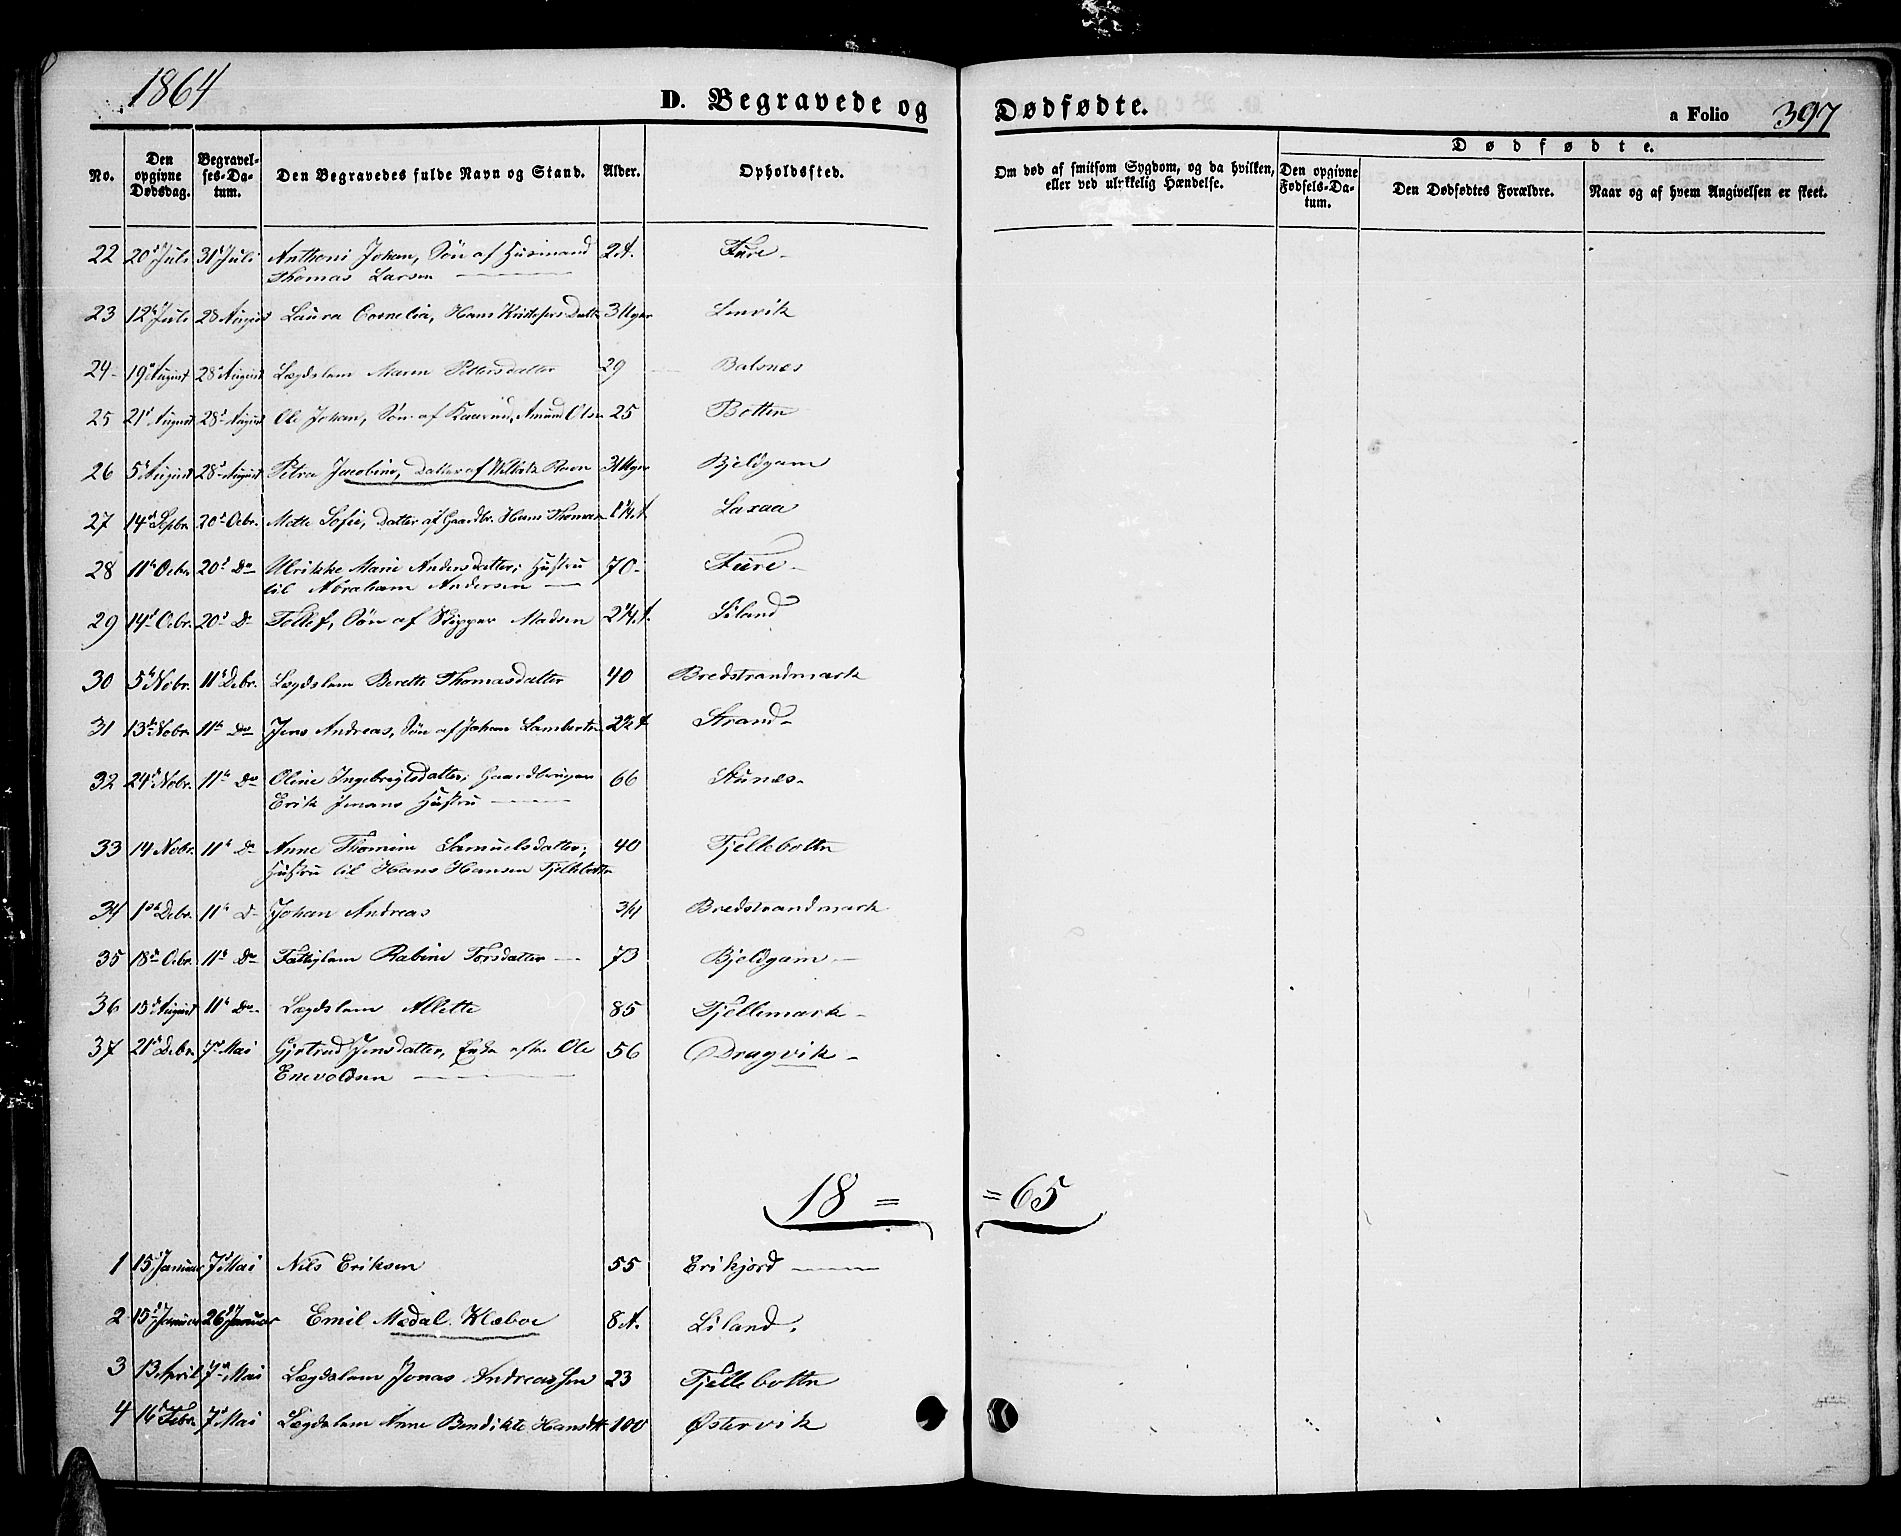 1864
D. Begravede og Dødfødte.
a Folio 397
Dødfødte.
No. Den opgivne Dødsdag. Begravelses-Datum. Den Begravedes fulde Navn og Stand. Alder. Opholdssted. Om død af smitsom Sygdom, og da hvilken, eller ved ulykkelig Hændelse. Den opgivne Fødsels-Datum. Den Dødfødtes Forældre. Naar og af hvem Angivelsen er skeet.
22 20 Juli 31 Juli Anthoni Johan, Søn af Husmand 2 A.
Thomas Larsen
23 12 Juli 28 August Laura Cornelia, Hans 3 Uger Lenvik
24 19 August 28 August Lægdslem Maren Pettersdatter 29 Balsnes
25 21 August 28 August Ole Johan, Søn af Amund Olsen 25 Botten
26 5 August 28 August Petra Jacobine, Datter af 3 Uger Bjeldgam
27 14 Sepbr. 20 Ocbr. Mette Sofie, Datter af Gaardbr. Hans Thomas Laxaa
28 11 Ocbr 20 Do Ulrikke Marie Andersdatter, Hustru 70
til Abraham Andersen
29 14 Ocbr. 20 D Tollef, Søn af Skipper Madsen Liland
30 5 Nobr. 11 Debr. Lægdslem Berette Thomasdatter 40 Bredstrandmark
31 13 Nobr 11 Do Jens Andreas, Søn af Johan Strand
32 24 Nobr. 11 Do Oline Ingebrigtsdatter, Gaardbruger 66
Erik Jensens Hustru
33 14 Nobr. 11 D Anne Thomine Samuelsdatter, 40 Fjellebotten
Hustru til Hans Hansen Fjellebotten
34 1 Debr. 11 D Johan Andreas 3/4 Bredstrandmark
35 18 Ocbr. 11 Do Rabine Torsdatter 73 Bjeldgam
36 August 11 Do Lægdslem Allette 85 Fjellemark
37 21 Debr 7 Mai Gjertrud Jensdatter, Enke efter Ole 56 Dragvik
Enevoldsen
18 = = 65
1 15 Januar 7 Mai Nils Eriksen 55 Erikjord
2 15 Januar 26 Januar Emil Medal Klæboe 8 A. Liland.
3 13 April 7 Mai Lægdslem Jonas Andreassen 23 Fjellebotten
4 16 Febr. 7 Mai Lægdslem Anne Bendikte Hansdtt 100 Østervik